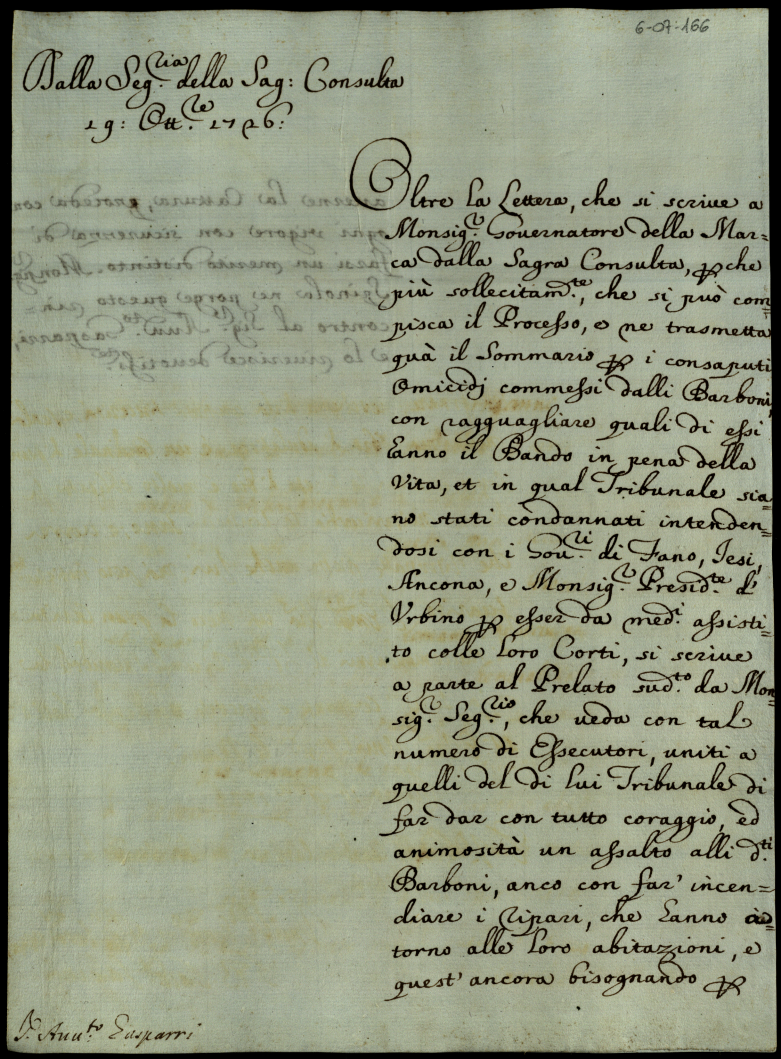 6-07-166
Dalla Seg.ria della Sag: Consulta
19: Ott.re 1726:
Oltre la Lettera, che si scrive a
Monsig.r Governatore della Mar=
ca dalla Sagra Consulta, ꝑ che
più sollecitam.te, che si può com=
pisca il Processo, e ne trasmetta
quà il Sommario ꝑ i consaputi
Omicidj commessi dalli Barboni,
con ragguagliare quali di essi
hanno il Bando in pena della
Vita, et in qual Tribunale sia=
no stati condannati intenden=
dosi con i Gou.ri di Fano, Iesi,
Ancona, e Monsig.r Presid.te d'
Vrbino ꝑ esser da med.i assisti=
to colle loro Corti, si scriue
a parte al Prelato sud.to da Mon=
sig.r Seg.rio, che ueda con tal
numero di Essecutori, uniti a
quelli del di lui Tribunale di
far dar con tutto coraggio, ed
animosità un assalto alli d.ti
Barboni, anco con far' incen=
diare i ripari, che hanno at=
torno alle loro abitazioni, e
quest' ancora bisognando ꝑ
Gasparri